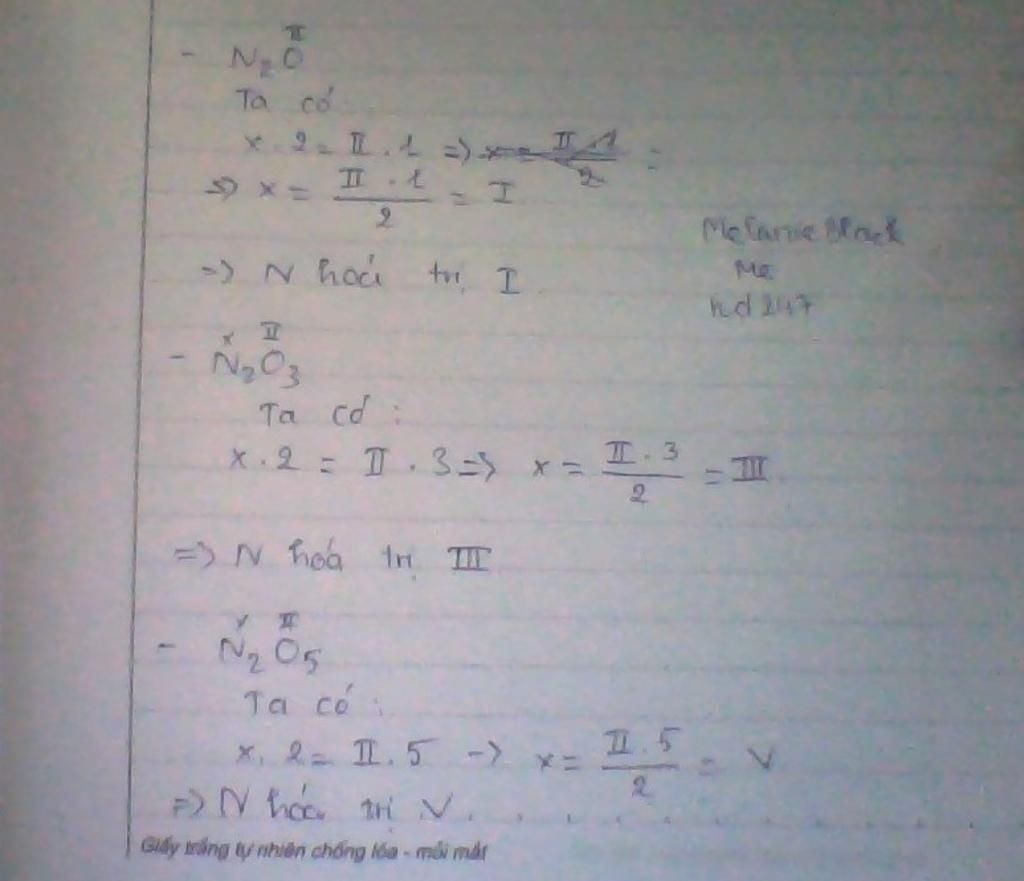 II
- N₂O
Ta có
x . 2 = II . 1 => x = II . 1 / 2 =
=> x = II . 1 / 2 = I
=> N hoá trị I
Melanie Black
Me
hd247
x II
- N₂O₃
Ta có :
x . 2 = II . 3 => x = II . 3 / 2 = III
=> N hoá trị III
x II
- N₂O₅
Ta có :
x . 2 = II . 5 -> x = II . 5 / 2 = V
=> N hóa trị V.
Giấy trắng tự nhiên chống lóa - mỏi mắt